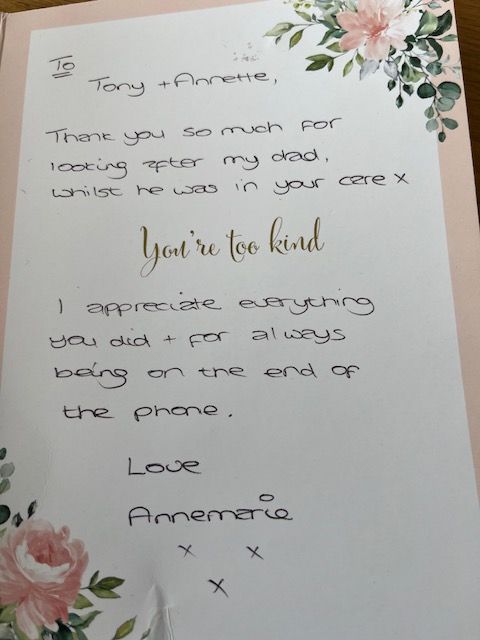 To
Tony + Annette,
Thank you so much for
looking after my dad,
whilst he was in your care x
You're too kind
I appreciate everything
you did + for always
being on the end of
the phone.
Love
Annemarie
x x
x